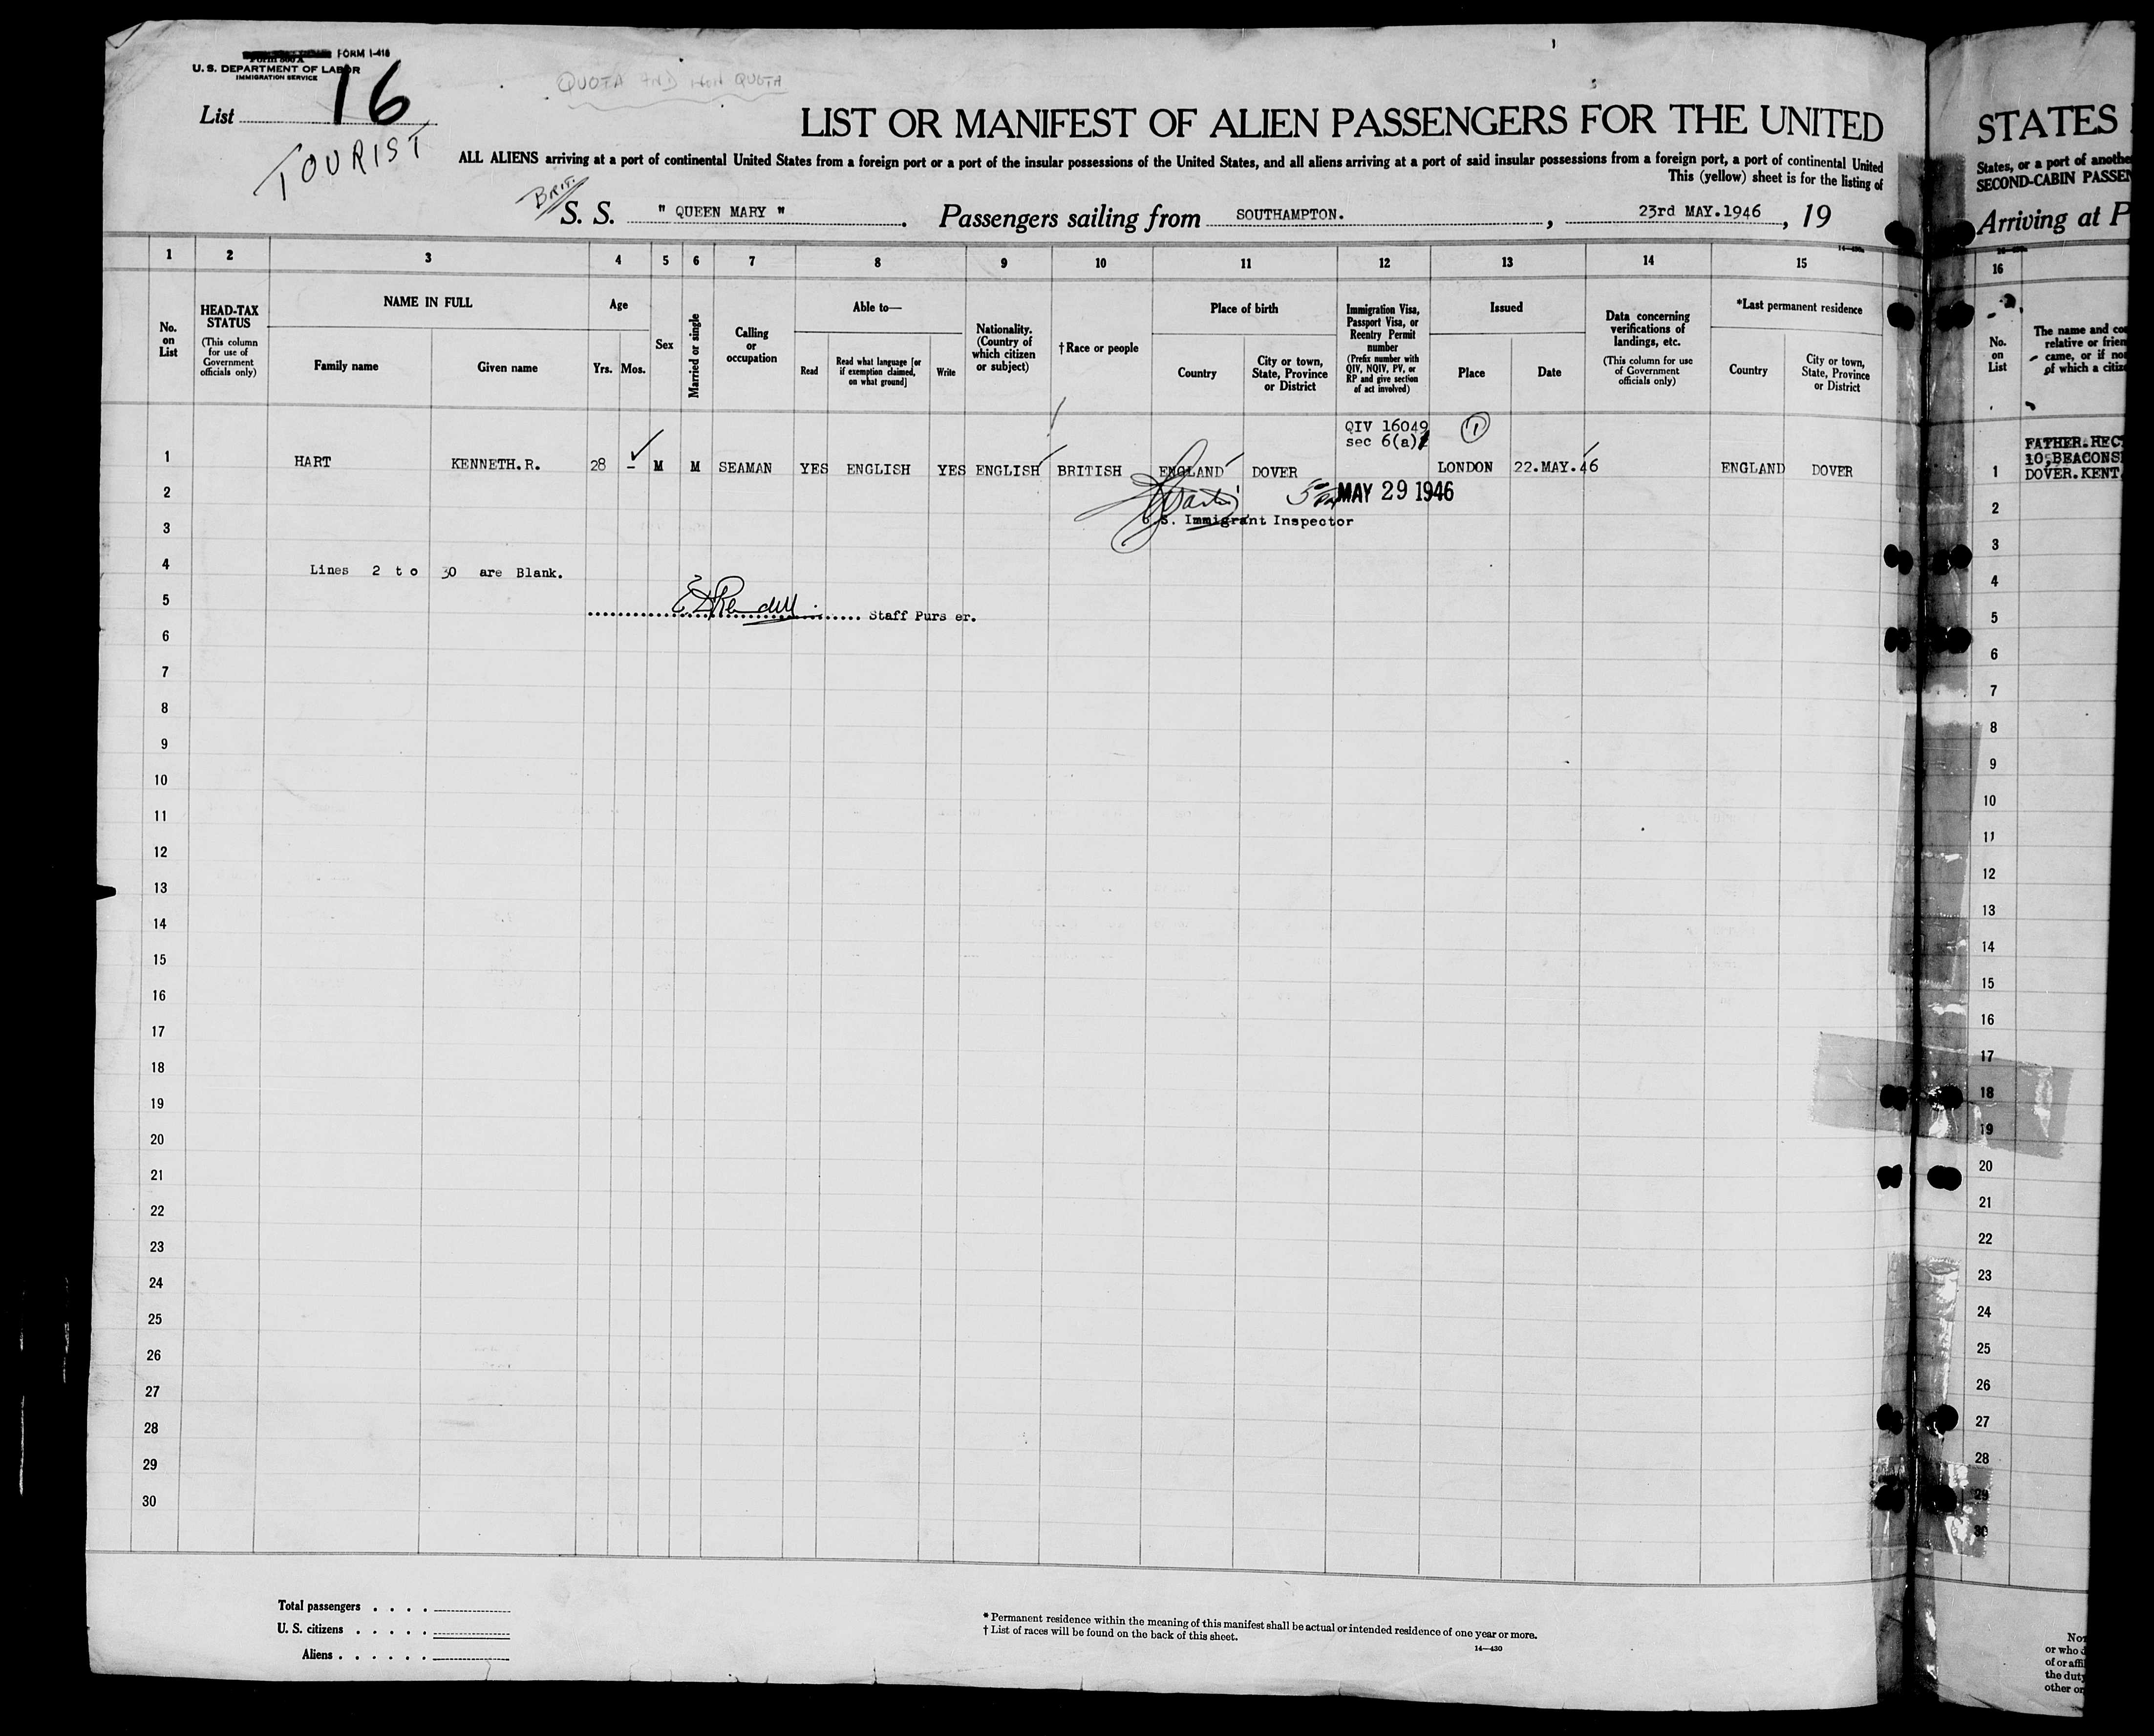 FORM I-418
Form 500 A
U. S. DEPARTMENT OF LABOR
IMMIGRATION SERVICE
QUOTA AND NON QUOTA
List 16
TOURIST
LIST OR MANIFEST OF ALIEN PASSENGERS FOR THE UNITED
ALL ALIENS arriving at a port of continental United States from a foreign port or a port of the insular possessions of the United States, and all aliens arriving at a port of said insular possessions from a foreign port, a port of continental United
This (yellow) sheet is for the listing of
BRIT.
S. S. " QUEEN MARY " . Passengers sailing from SOUTHAMPTON. , 23rd MAY.1946 , 19
1 2 3 4 5 6 7 8 9 10 11 12 13 14 15
No. on List
HEAD-TAX STATUS
(This column for use of Government officials only)
NAME IN FULL
Family name Given name
Age
Yrs. Mos.
Sex
Married or single
Calling or occupation
Able to—
Read
Read what language [or if exemption claimed, on what ground]
Write
Nationality. (Country of which citizen or subject)
†Race or people
Place of birth
Country
City or town, State, Province or District
Immigration Visa, Passport Visa, or Reentry Permit number
(Prefix number with QIV, NQIV, PV, or RP and give section of act involved)
Issued
Place Date
Data concerning verifications of landings, etc.
(This column for use of Government officials only)
*Last permanent residence
Country
City or town, State, Province or District
QIV 16049 1
sec 6(a)
1 HART KENNETH.R. 28 – M M SEAMAN YES ENGLISH YES ENGLISH BRITISH ENGLAND DOVER LONDON 22.MAY.46 ENGLAND DOVER
2 MAY 29 1946
3 U.S. Immigrant Inspector
4 Lines 2 to 30 are Blank.
5 Staff Purs er.
6
7
8
9
10
11
12
13
14
15
16
17
18
19
20
21
22
23
24
25
26
27
28
29
30
Total passengers . . . .
U. S. citizens . . . . .
Aliens . . . . . .
* Permanent residence within the meaning of this manifest shall be actual or intended residence of one year or more.
† List of races will be found on the back of this sheet.
14—430
STATES
States, or a port of another
SECOND-CABIN PASSEN
Arriving at P
16
No. on List
The name and co
relative or frien
came, or if no
of which a citiz
FATHER.HEC
10,BEACONS
1 DOVER.KENT
2
3
4
5
6
7
8
9
10
11
12
13
14
15
16
17
18
19
20
21
22
23
24
25
26
27
28
29
30
or who
of or affi
the duty
other or